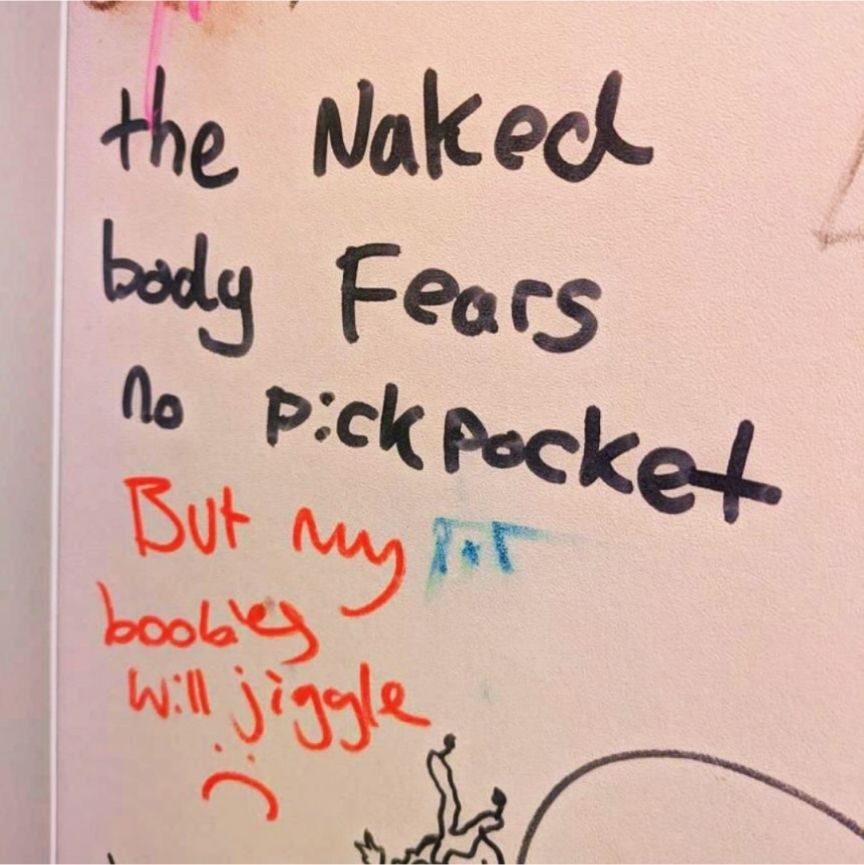 the Naked
body Fears
no pickpocket
But my
boobies
will jiggle
:(